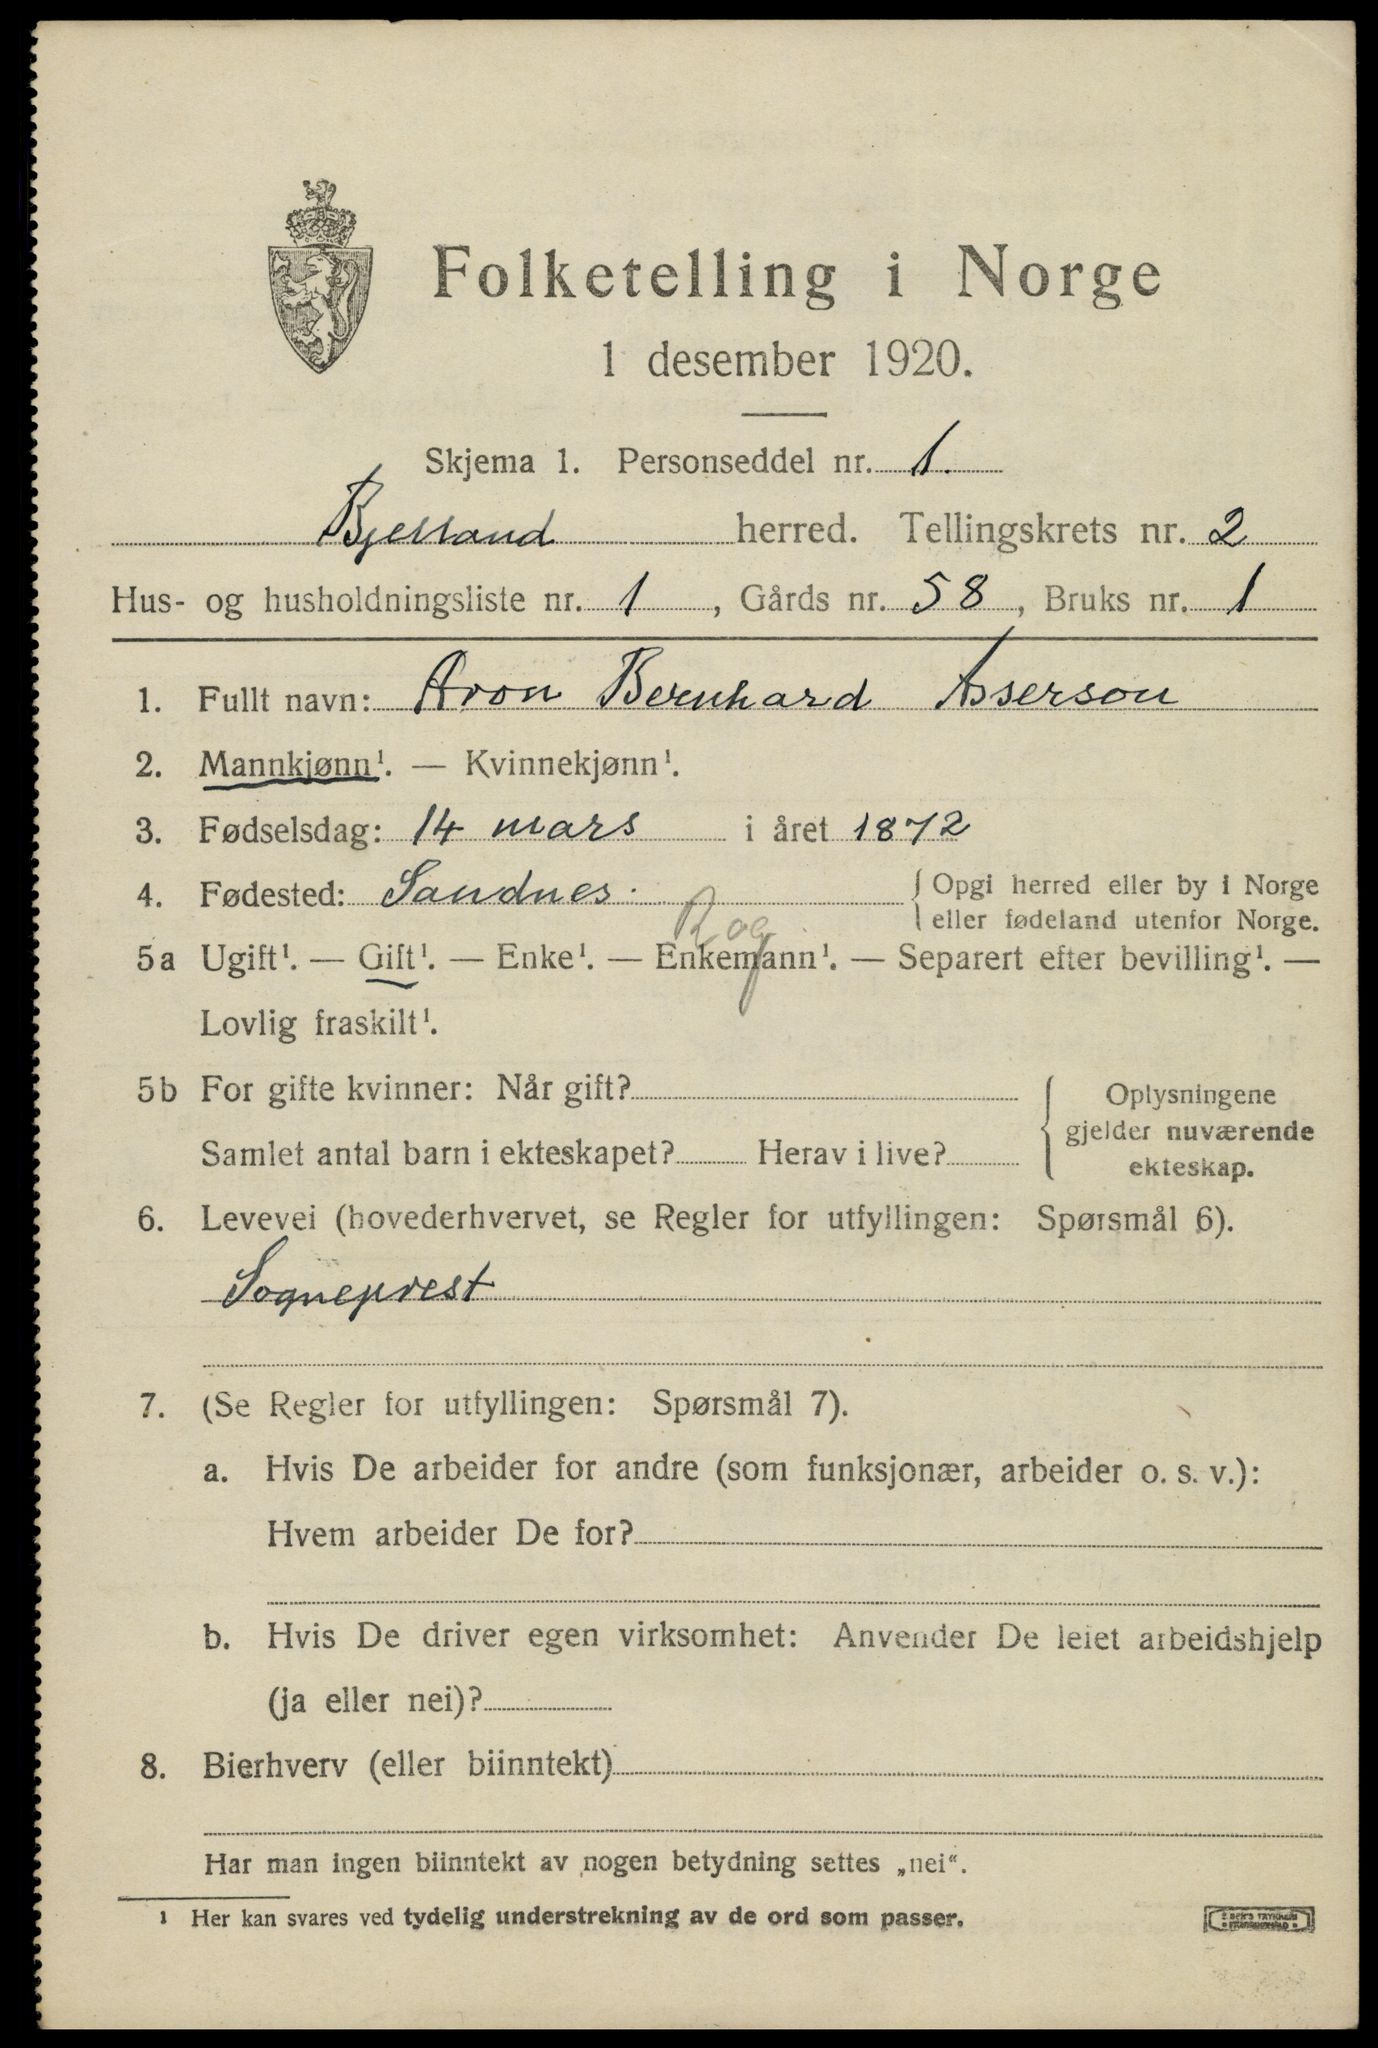 Folketelling i Norge
1 desember 1920.
Skjema 1. Personseddel nr. 1.
Bjelland herred. Tellingskrets nr. 2
Hus- og husholdningsliste nr. 1, Gårds nr. 58, Bruks nr. 1
1. Fullt navn: Aron Bernhard Asserson
2. Mannkjønn¹. — Kvinnekjønn¹.
3. Fødselsdag: 14 mars i året 1872
4. Fødested: Sandnes. { Opgi herred eller by i Norge
eller fødeland utenfor Norge.
Rog
5a Ugift¹. — Gift¹. — Enke¹. — Enkemann¹. — Separert efter bevilling¹. —
Lovlig fraskilt¹.
5b For gifte kvinner: Når gift?
Samlet antal barn i ekteskapet? Herav i live?
{ Oplysningene
gjelder nuværende
ekteskap.
6. Levevei (hovederhvervet, se Regler for utfyllingen: Spørsmål 6).
Sogneprest
7. (Se Regler for utfyllingen: Spørsmål 7).
a. Hvis De arbeider for andre (som funksjonær, arbeider o. s. v.):
Hvem arbeider De for?
b. Hvis De driver egen virksomhet: Anvender De leiet arbeidshjelp
(ja eller nei)?
8. Bierhverv (eller biinntekt)
Har man ingen biinntekt av nogen betydning settes „nei“.
¹ Her kan svares ved tydelig understrekning av de ord som passer.